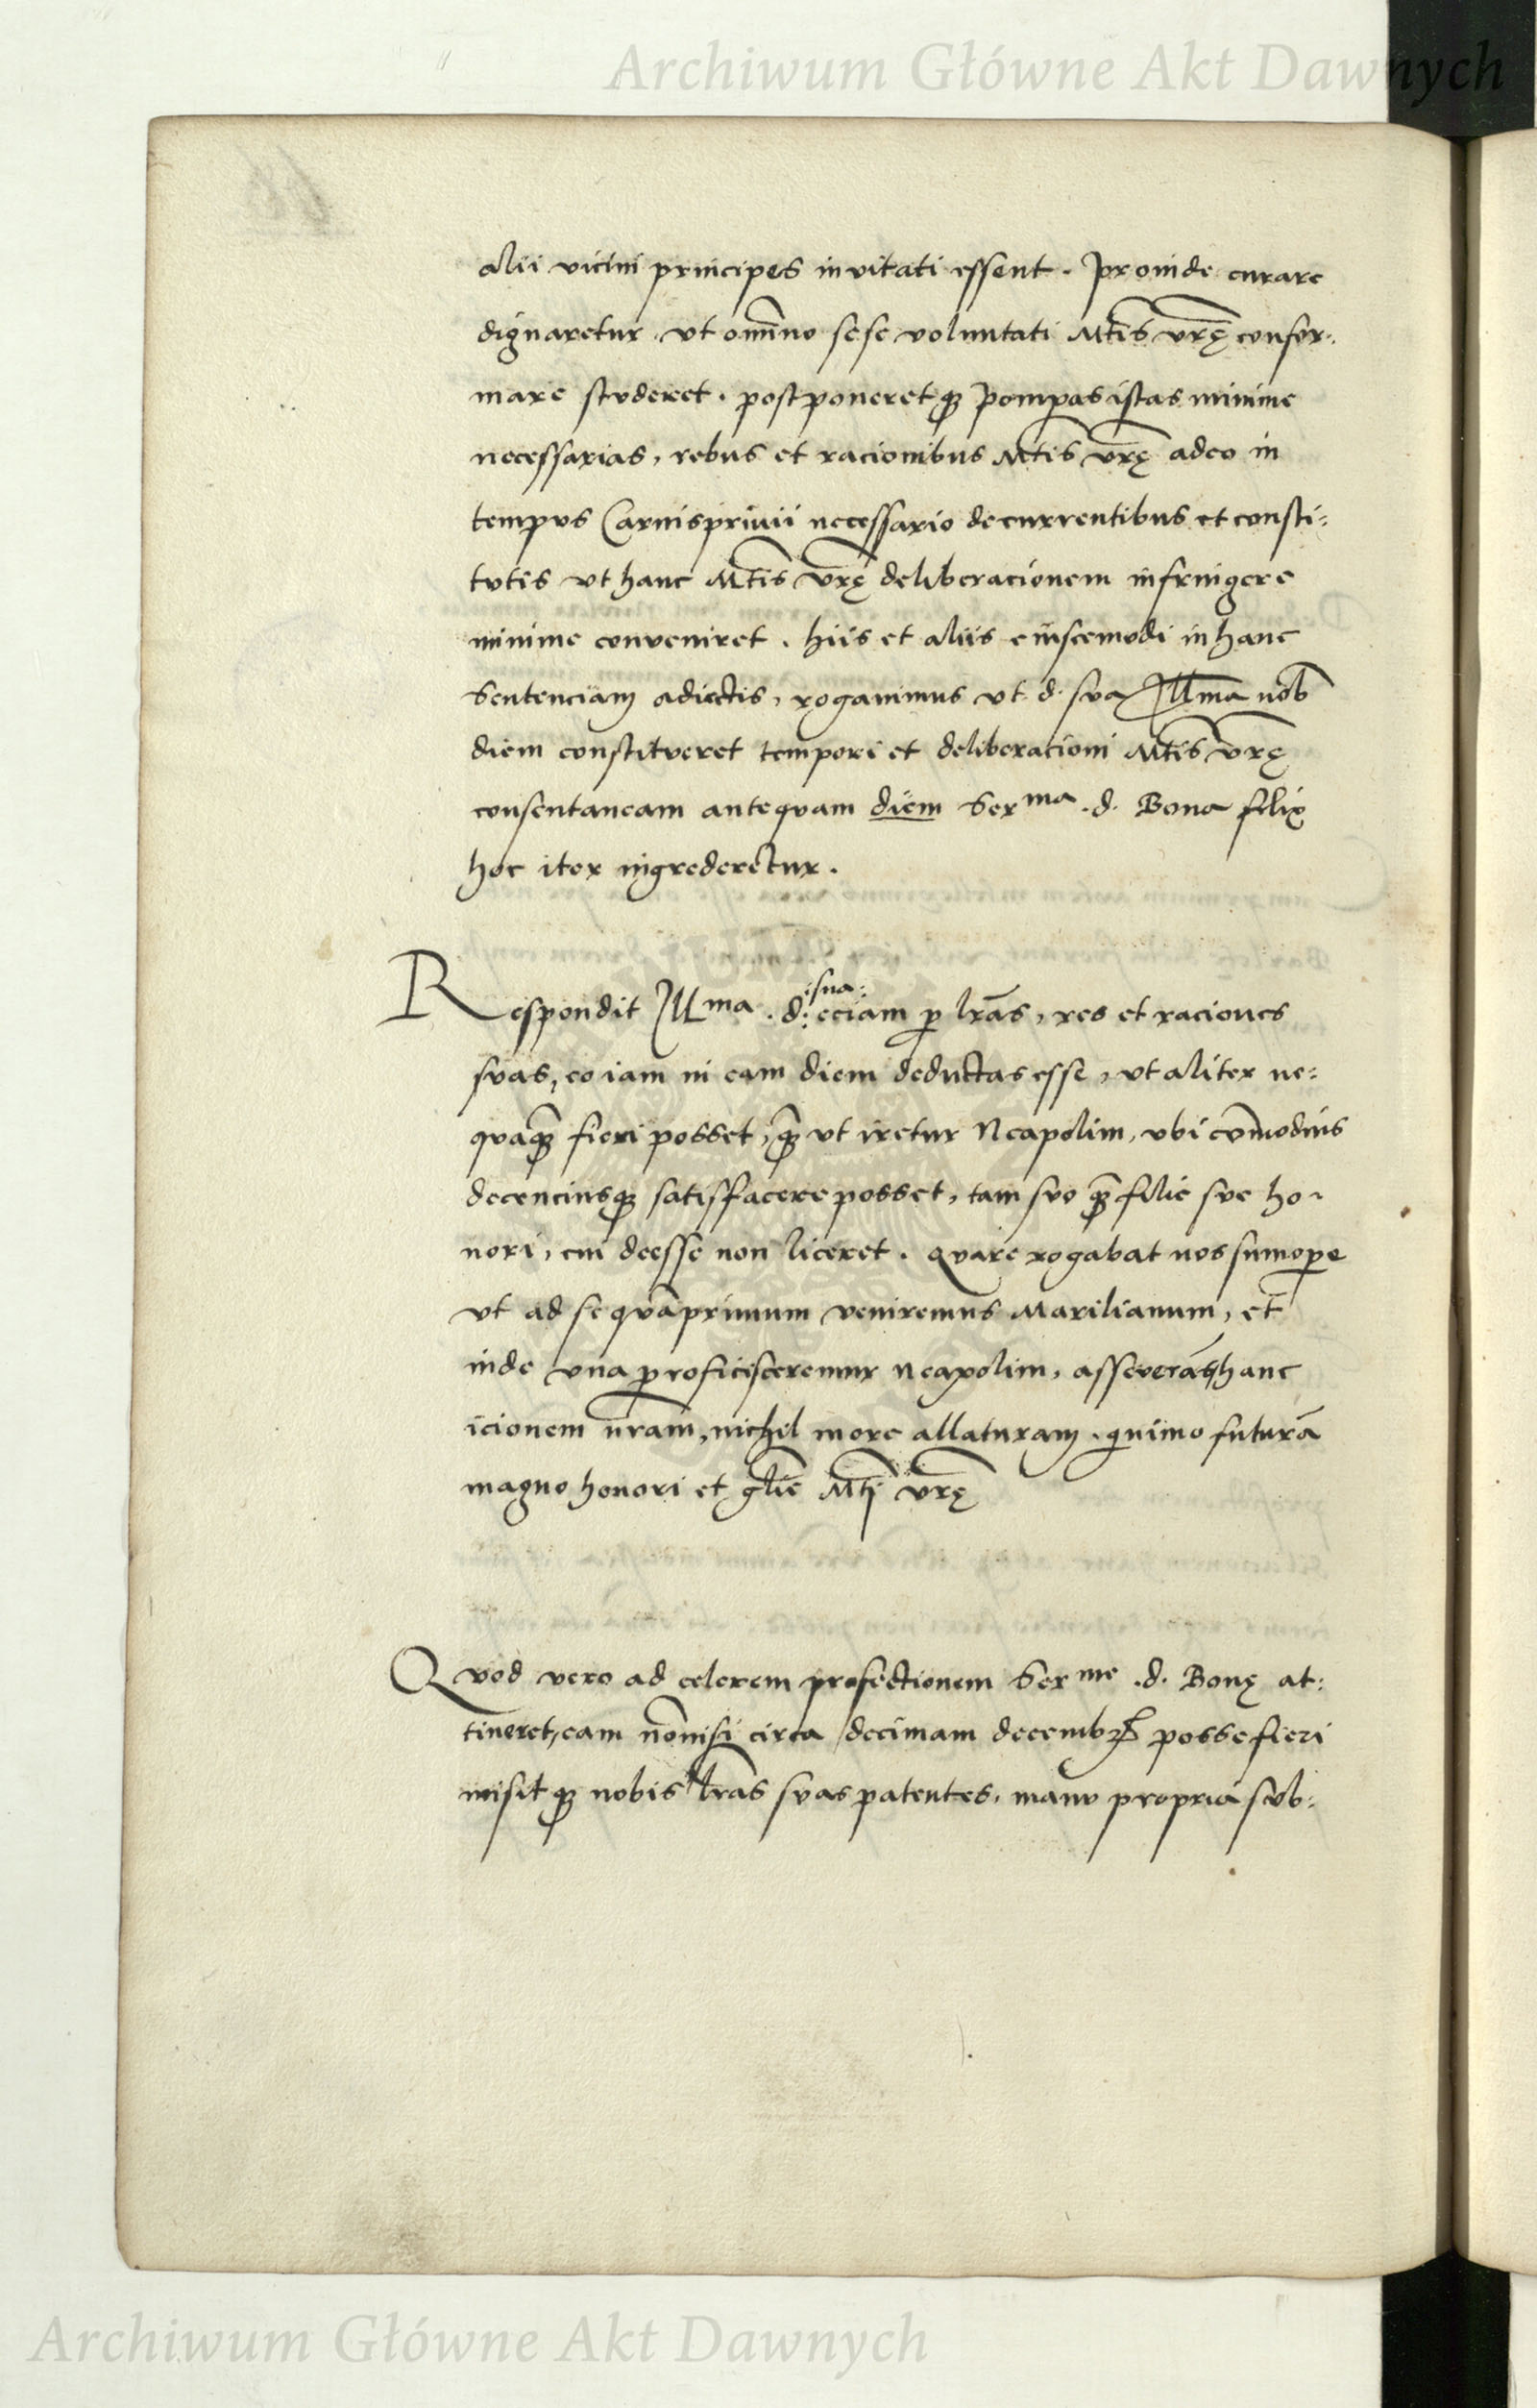 Archiwum Główne Akt Dawnych
alii vicini principes invitati essent. Proinde curare
dignaretur vt om̅ino sese voluntati Mtis vrę confor:
mare studeret. postponeretq; pompas istas minime
necessarias, rebus et racionibus Mtis vrę adeo in
tempus Carnisprivii necessario decurrentibus et consti:
tutis vt hanc Mtis vrę deliberacionem infringere
minime conveniret. hiis et aliis eiuscemodi in hanc
sentenciam adiectis, rogavimus vt d. sua Illma nob
diem constitueret tempori et deliberacioni Mtis vrę
consentaneam antequam diem Serma .d. Bona felix
hoc iter ingrederetur.
Respondit Illma .d: :sua: eciam p lr̅as, res et raciones
suas, eo iam in eam diem deductas esse, vt aliter ne:
quaq̅ fieri posset, q̅ vt iretur Neapolim, vbi co̅modius
decenciusq; satisfacere posset, tam suo q̅ filie sue ho-
nori, cui deesse non liceret. Quare rogabat nos sumope
vt ad se qua̅primum veniremus Marilianum, et
inde vna proficisceremur Neapolim, asseverans hanc
icionem nram, nichil more allaturam. quinimo futura̅
magno honori et glie Mti vrę
Quod vero ad celerem profectionem Serme .d. Bonę at:
tineret, eam no̅nisi circa decimam decembr posse fieri
misitq; nobis lr̅as suas patentes, manu propria sub:
Archiwum Główne Akt Dawnych